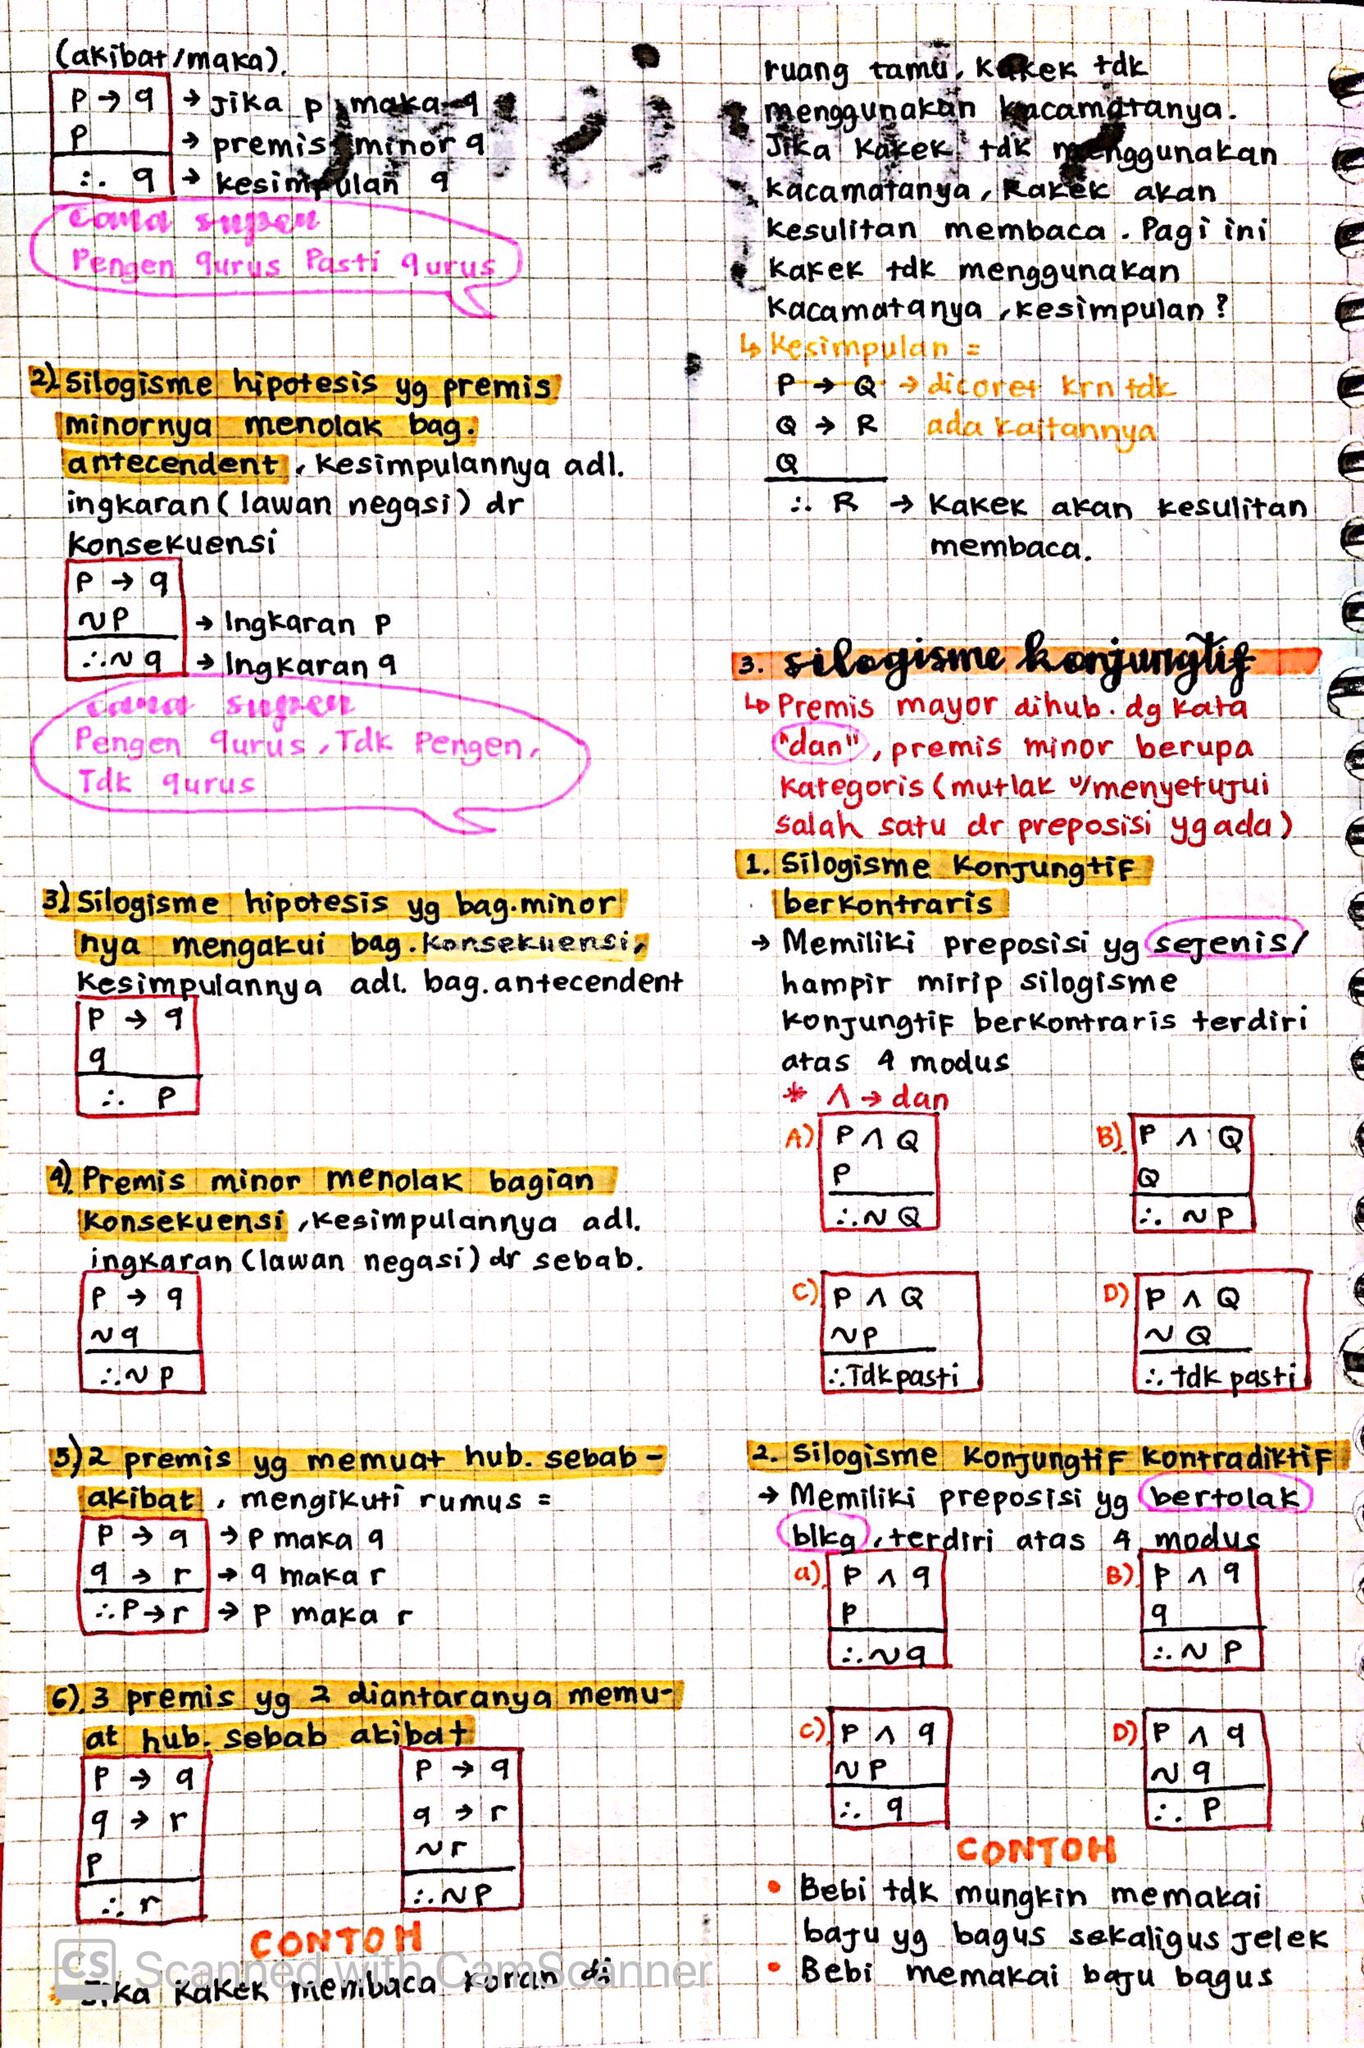 (akibat/maka).
P → q → Jika p maka q
P → premis minor q
∴ q → kesimpulan q
cara super
Pengen qurus Pasti qurus
2) Silogisme hipotesis yg premis
minornya menolak bag.
antecendent, kesimpulannya adl.
ingkaran (lawan negasi) dr
konsekuensi
P → q
~P → Ingkaran P
∴ ~q → Ingkaran q
cara super
Pengen qurus, Tdk Pengen,
Tdk qurus
3) Silogisme hipotesis yg bag.minor
nya mengakui bag. konsekuensi,
kesimpulannya adl. bag.antecendent
P → q
q
∴ P
4) Premis minor menolak bagian
konsekuensi, kesimpulannya adl.
ingkaran (lawan negasi) dr sebab.
P → q
~q
∴ ~P
5) 2 premis yg memuat hub. sebab-
akibat, mengikuti rumus =
P → q → P maka q
q → r → q maka r
∴ P → r → P maka r
6). 3 premis yg 2 diantaranya memu-
at hub. sebab akibat
P → q
q → r
P
∴ r
P → q
q → r
~r
∴ ~P
CONTOH
Jika kakek membaca koran di
CS Scanned with CamScanner
ruang tamu, kakek tdk
menggunakan kacamatanya.
Jika kakek tdk menggunakan
kacamatanya, kakek akan
kesulitan membaca. Pagi ini
kakek tdk menggunakan
kacamatanya, kesimpulan?
↳ kesimpulan =
P → Q → dicoret krn tdk
Q → R ada kaitannya
Q
∴ R → Kakek akan kesulitan
membaca.
3. silogisme konjungtif
↳ Premis mayor dihub. dg kata
"dan", premis minor berupa
kategoris (mutlak u/menyetujui
salah satu dr preposisi yg ada)
1. Silogisme Konjungtif
berkontraris
→ Memiliki preposisi yg sejenis/
hampir mirip silogisme
konjungtif berkontraris terdiri
atas 4 modus
* ∧ → dan
A) P ∧ Q
P
∴ ~Q
B) P ∧ Q
Q
∴ ~P
C) P ∧ Q
~P
∴ Tdk pasti
D) P ∧ Q
~Q
∴ tdk pasti
2. Silogisme Konjungtif Kontradiktif
→ Memiliki preposisi yg bertolak
blkg, terdiri atas 4 modus
a) P ∧ q
P
∴ ~q
B) P ∧ q
q
∴ ~P
C) P ∧ q
~P
∴ q
D) P ∧ q
~q
∴ P
CONTOH
• Bebi tdk mungkin memakai
baju yg bagus sekaligus jelek
• Bebi memakai baju bagus